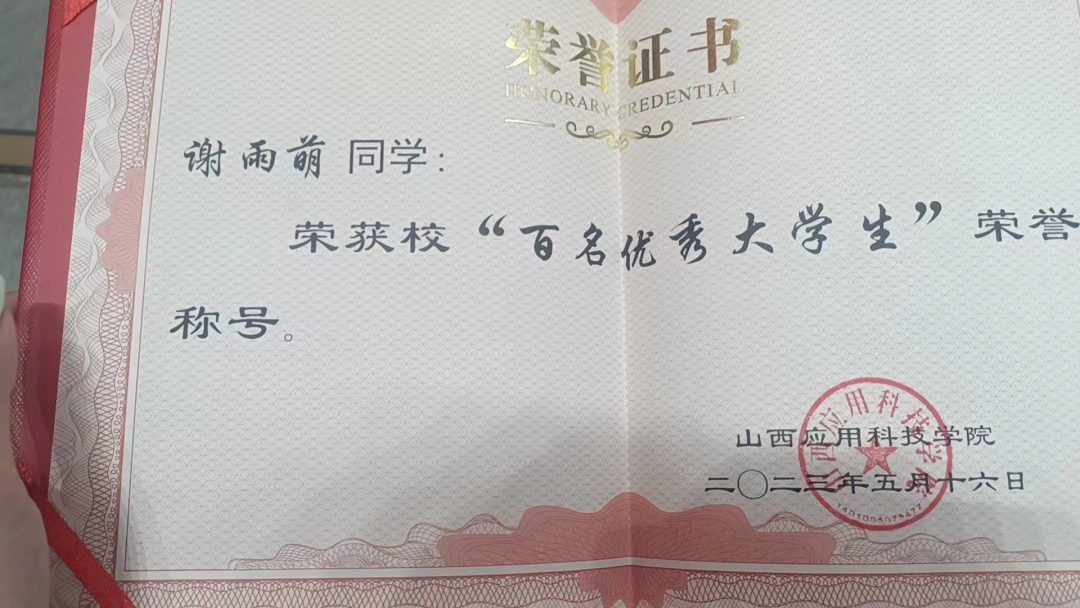 荣誉证书
HONORARY CREDENTIAL
谢雨萌 同学：
荣获校“百名优秀大学生”荣誉
称号。
山西应用科技学院
二〇二三年五月十六日
山西应用科技学院